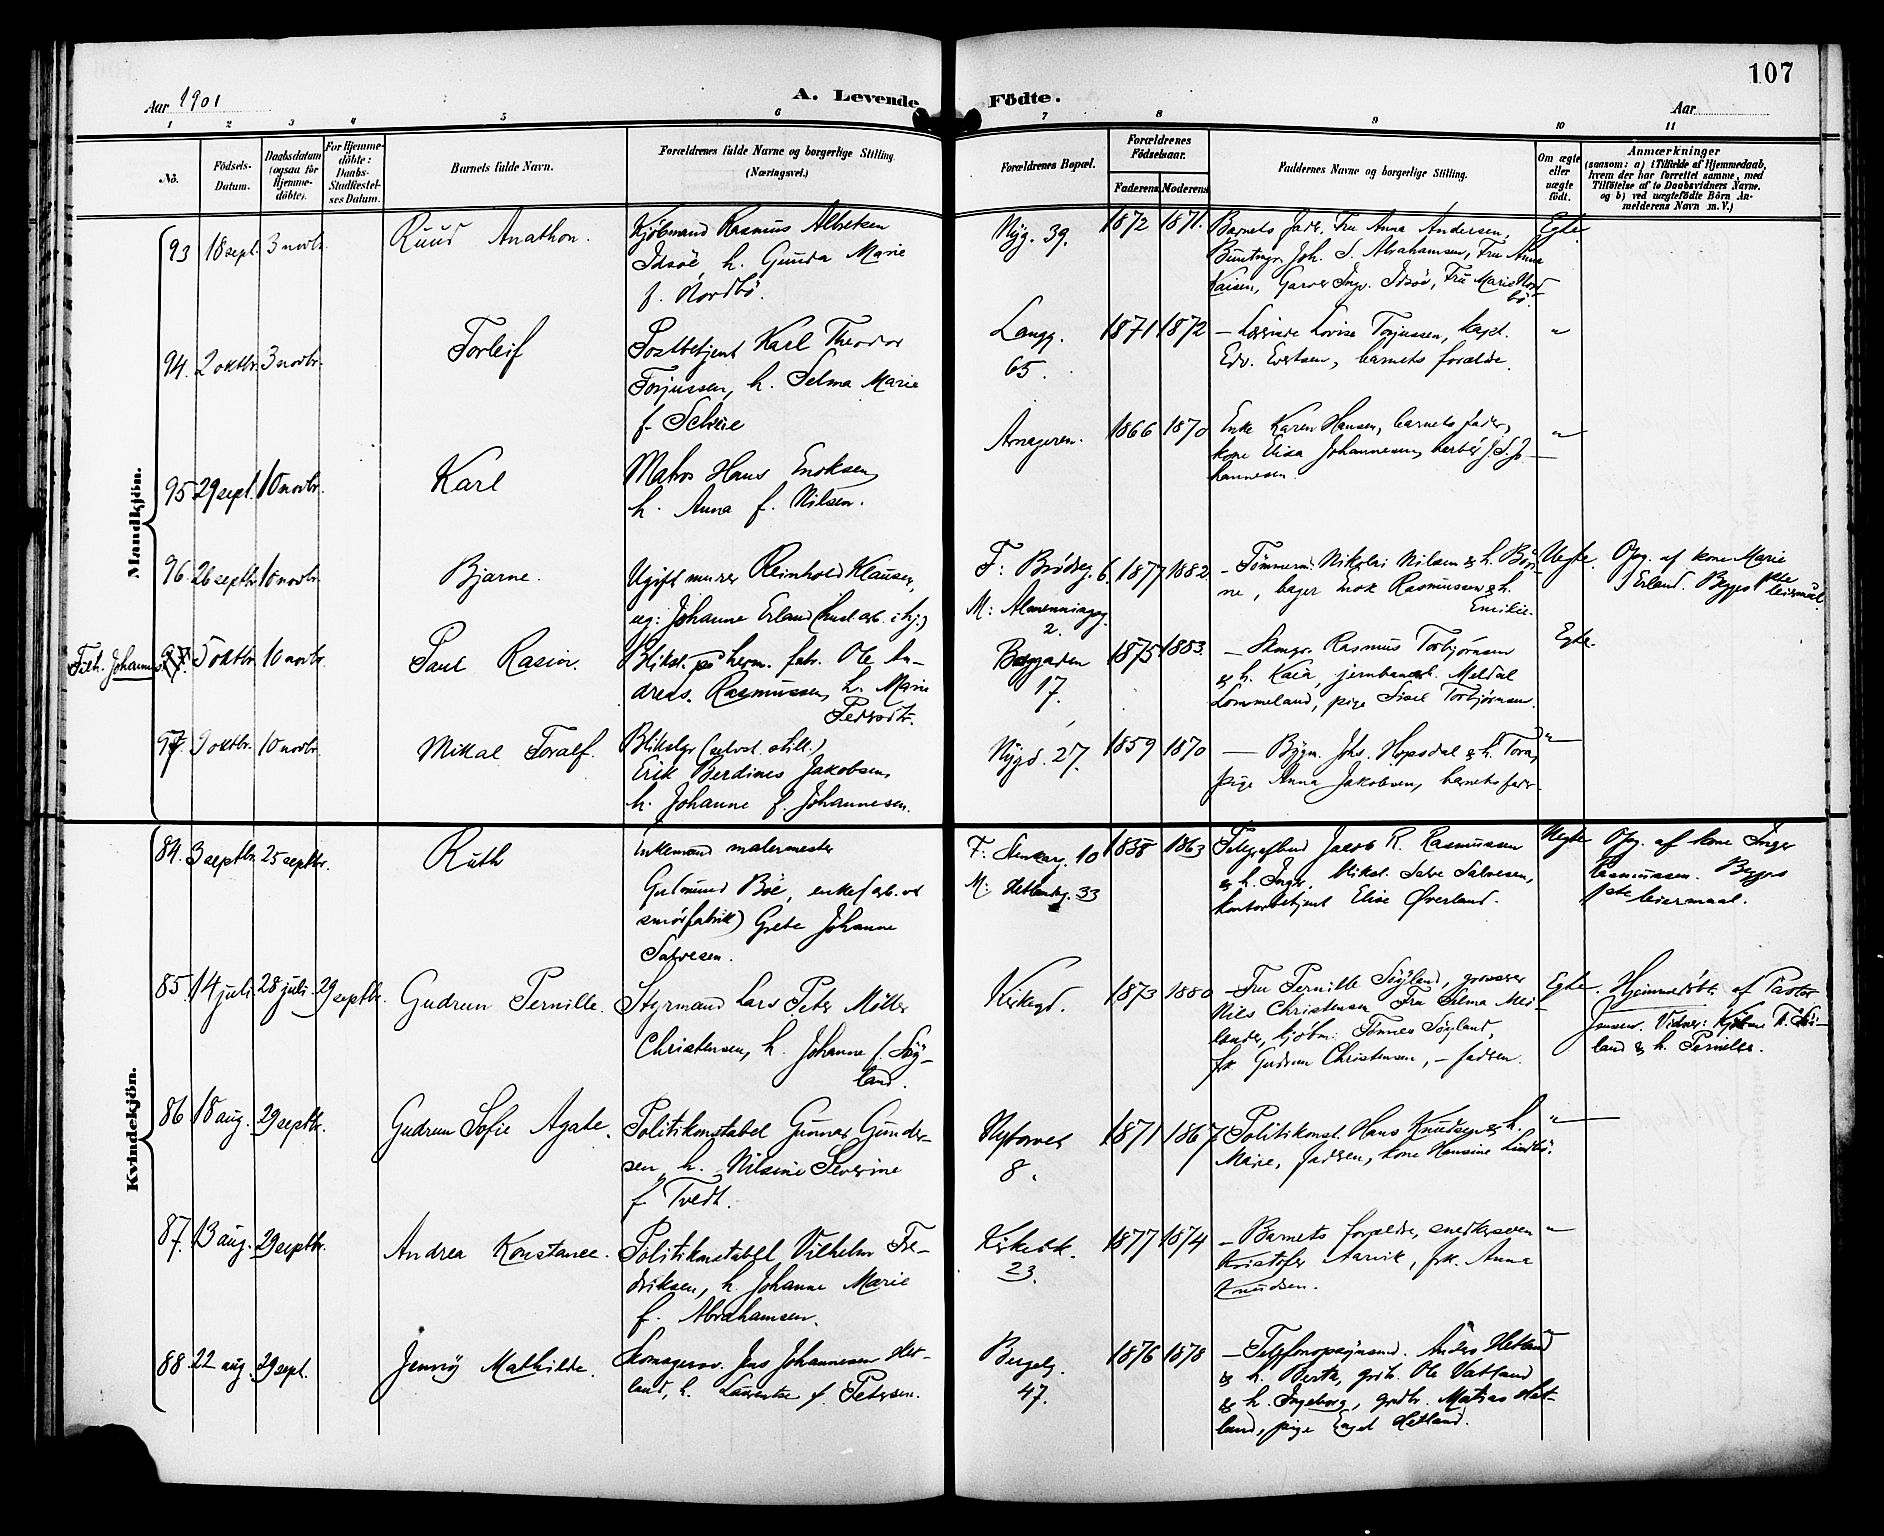 107
Aar 1901
A. Levende Födte.
Aar
1 2 3 4 5 6 7 8 9 10 11
Nô.
Födsels-
Datum.
Daabsdatum
(ogsaa for
Hjemme-
döbte).
For Hjemme-
döbte:
Daabs-
Stadfæstel-
ses Datum.
Barnets fulde Navn.
Forældrenes fulde Navne og borgerlige Stilling.
(Næringsvei.)
Forældrenes Bopæl.
Forældrenes
Födselsaar.
Faderens
Moderens
Faddernes Navne og borgerlige Stilling.
Om ægte
eller
uægte
födt.
Anmærkninger
(saasom: a) i Tilfælde af Hjemmedaab,
hvem der har forrettet samme, med
Tilföielse af to Daabsvidners Navne,
og b) ved uægtefödte Börn An-
melderens Navn m. V.)
Mandkjön.
93 18 sept. 3 novbr. Ruud Anathon.
Kjöbmand Rasmus Albretsen
Idsöe, h. Gunda Marie
f. Nordbö.
Nyg. 39. 1872 1871.
Barnets fadr. Fru Anna Andersen,
Buntmgr. Joh. S. Abrahamsen, Fru Anna
Kaisen, Garver Ingv. Idsöe, Fru Marie Nord
bö.
Egte
94. 2 oktbr. 3 novbr. Torleif
Postbetjent Karl Theodor
Torjussen, h. Selma Marie
f. Selvie
Langg.
65.
1871 1872
– Lærerinde Lovise Torjussen, kapt.
Edv. Evertsen, barnets forælde.
"
95 29 sept. 10 novbr. Karl
Matros Hans Enoksen
h. Anna f. Nilsen.
Arnageren. 1866 1870
Enke Karen Hansen, barnets fader,
kone Elisa Johannesen, barber J. S. Jo-
hannesen.
"
96. 26 septbr. 10 novbr. Bjarne.
Ugift murer Reinhold Klausen,
ug: Johanne Erland (hust arb. i hj.)
F: Brödreg. 6.
M: Almenningsg.
2.
1877 1882
– Tömmerm. Nikolai Nilsen & h. Böri-
ne, bager Enok Rasmussen & h.
Emilie.
Uegte.
Opg. af kone Marie
Erland. Begges 1ste
leiermaal.
Tilh. Johannes 97. 5 oktbr. 10 novbr. Paul Rasin.
Blikst. på herm. fabr. Ole An-
dreas. Rasmussen, h. Marie
Pedersdt.
Bøggaden
17.
1875 1883.
– Skomgr. Rasmus Torbjörnsen
& h. Kaia, jernbanearb. Meldal
Lommeland, pige Sisel Torbjörnsen.
Egte.
97 9 oktbr. 10 novbr. Mikal Toralf.
Blikslgr (selvst. still.)
Erik Berdines Jakobsen,
h. Johanne f. Johannesen.
Nygd. 27. 1859 1870
– Bygm. Johs. Hopsdal & h. Tora,
pige Anna Jakobsen, barnets fadr.
"
Kvindekjön.
84. 3 septbr. 25 septbr. Ruth
Enkemand malermester
Gudmund Böe, enke (arb. ved
smörfabrik) Grete Johanne
Salvesen.
F: Stenkarg. 10
M: Hetlandsg. 33
1838 1863
Telegrafbud Jacob R. Rasmussen
& h. Inger, blikst. Salve Salvesen,
kontorbetjent Elise Överland.
Uegte
Opg. af kone Inger
Rasmussen. Begges
1ste leiermaal.
85. 14 juli. 28 juli. 29 septbr. Gudrun Pernille.
Styrmand Lars Peter Möller
Christensen, h. Johanne f. Söy-
land.
Kirkegd. 1873 1880
– Fru Pernille Söyland, grosserer
Nils Christensen, Fru Selma Mei-
lænder, kjöbm. Tönnes Söyland,
frk. Gudrun Christensen, – fadren.
Egte.
Hjemmedöbt af Pastor
Jensen. Vidner: Kjöbm. T. Söi-
land & h. Pernille.
86 18 aug. 29 septbr. Gudrun Sofie Agate.
Politikonstabel Gunnar Gunder-
sen, h. Nilsine Severine
f. Tvedt.
Nytorvet
8.
1871 1867
– Politikonst. Hans Knudsen & h.
Marie, fadren, kone Hansine Lindbö.
"
87. 13 aug. 29 septbr. Andrea Konstance.
Politikonstabel Vilhelm Fre-
driksen, h. Johanne Marie
f. Abrahamsen.
Kirkebk.
23.
1877 1874
– Barnets forældre, snedkersven
Kristofer Aarvik, frk. Anna
Knudsen.
"
88 22 aug. 29 sept. Jenny Mathilde.
Skomagersv. Jens Johannesen Het-
land, h. Laurentse f. Petersen.
Bergelg.
47.
1876 1878
– Telefonopsynsmd. Anders Hetland
& h. Berta, grdbr. Ole Vatland
& h. Ingeborg, grdbr. Matias Het-
land, pige Engel Hetland.
"